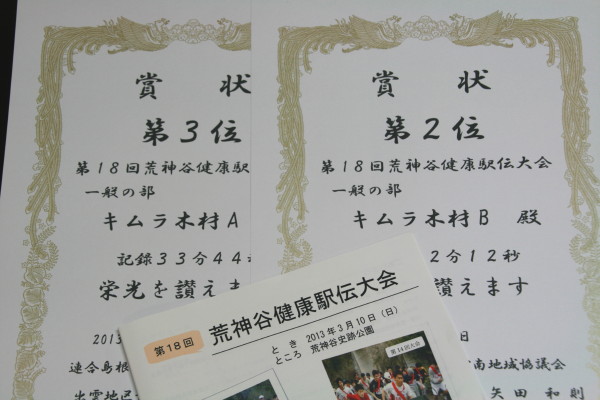 賞 状
第3位
第18回荒神谷健康駅
一般の部
キムラ木材A
記録33分44
栄光を讃えま
2013
連合島根
出雲地区
賞 状
第2位
第18回荒神谷健康駅伝大会
一般の部
キムラ木材B 殿
2分12秒
讃えます
日
南地域協議会
矢田 和則
第18回 荒神谷健康駅伝大会
とき 2013年3月10日(日)
ところ 荒神谷史跡公園
第14回大会